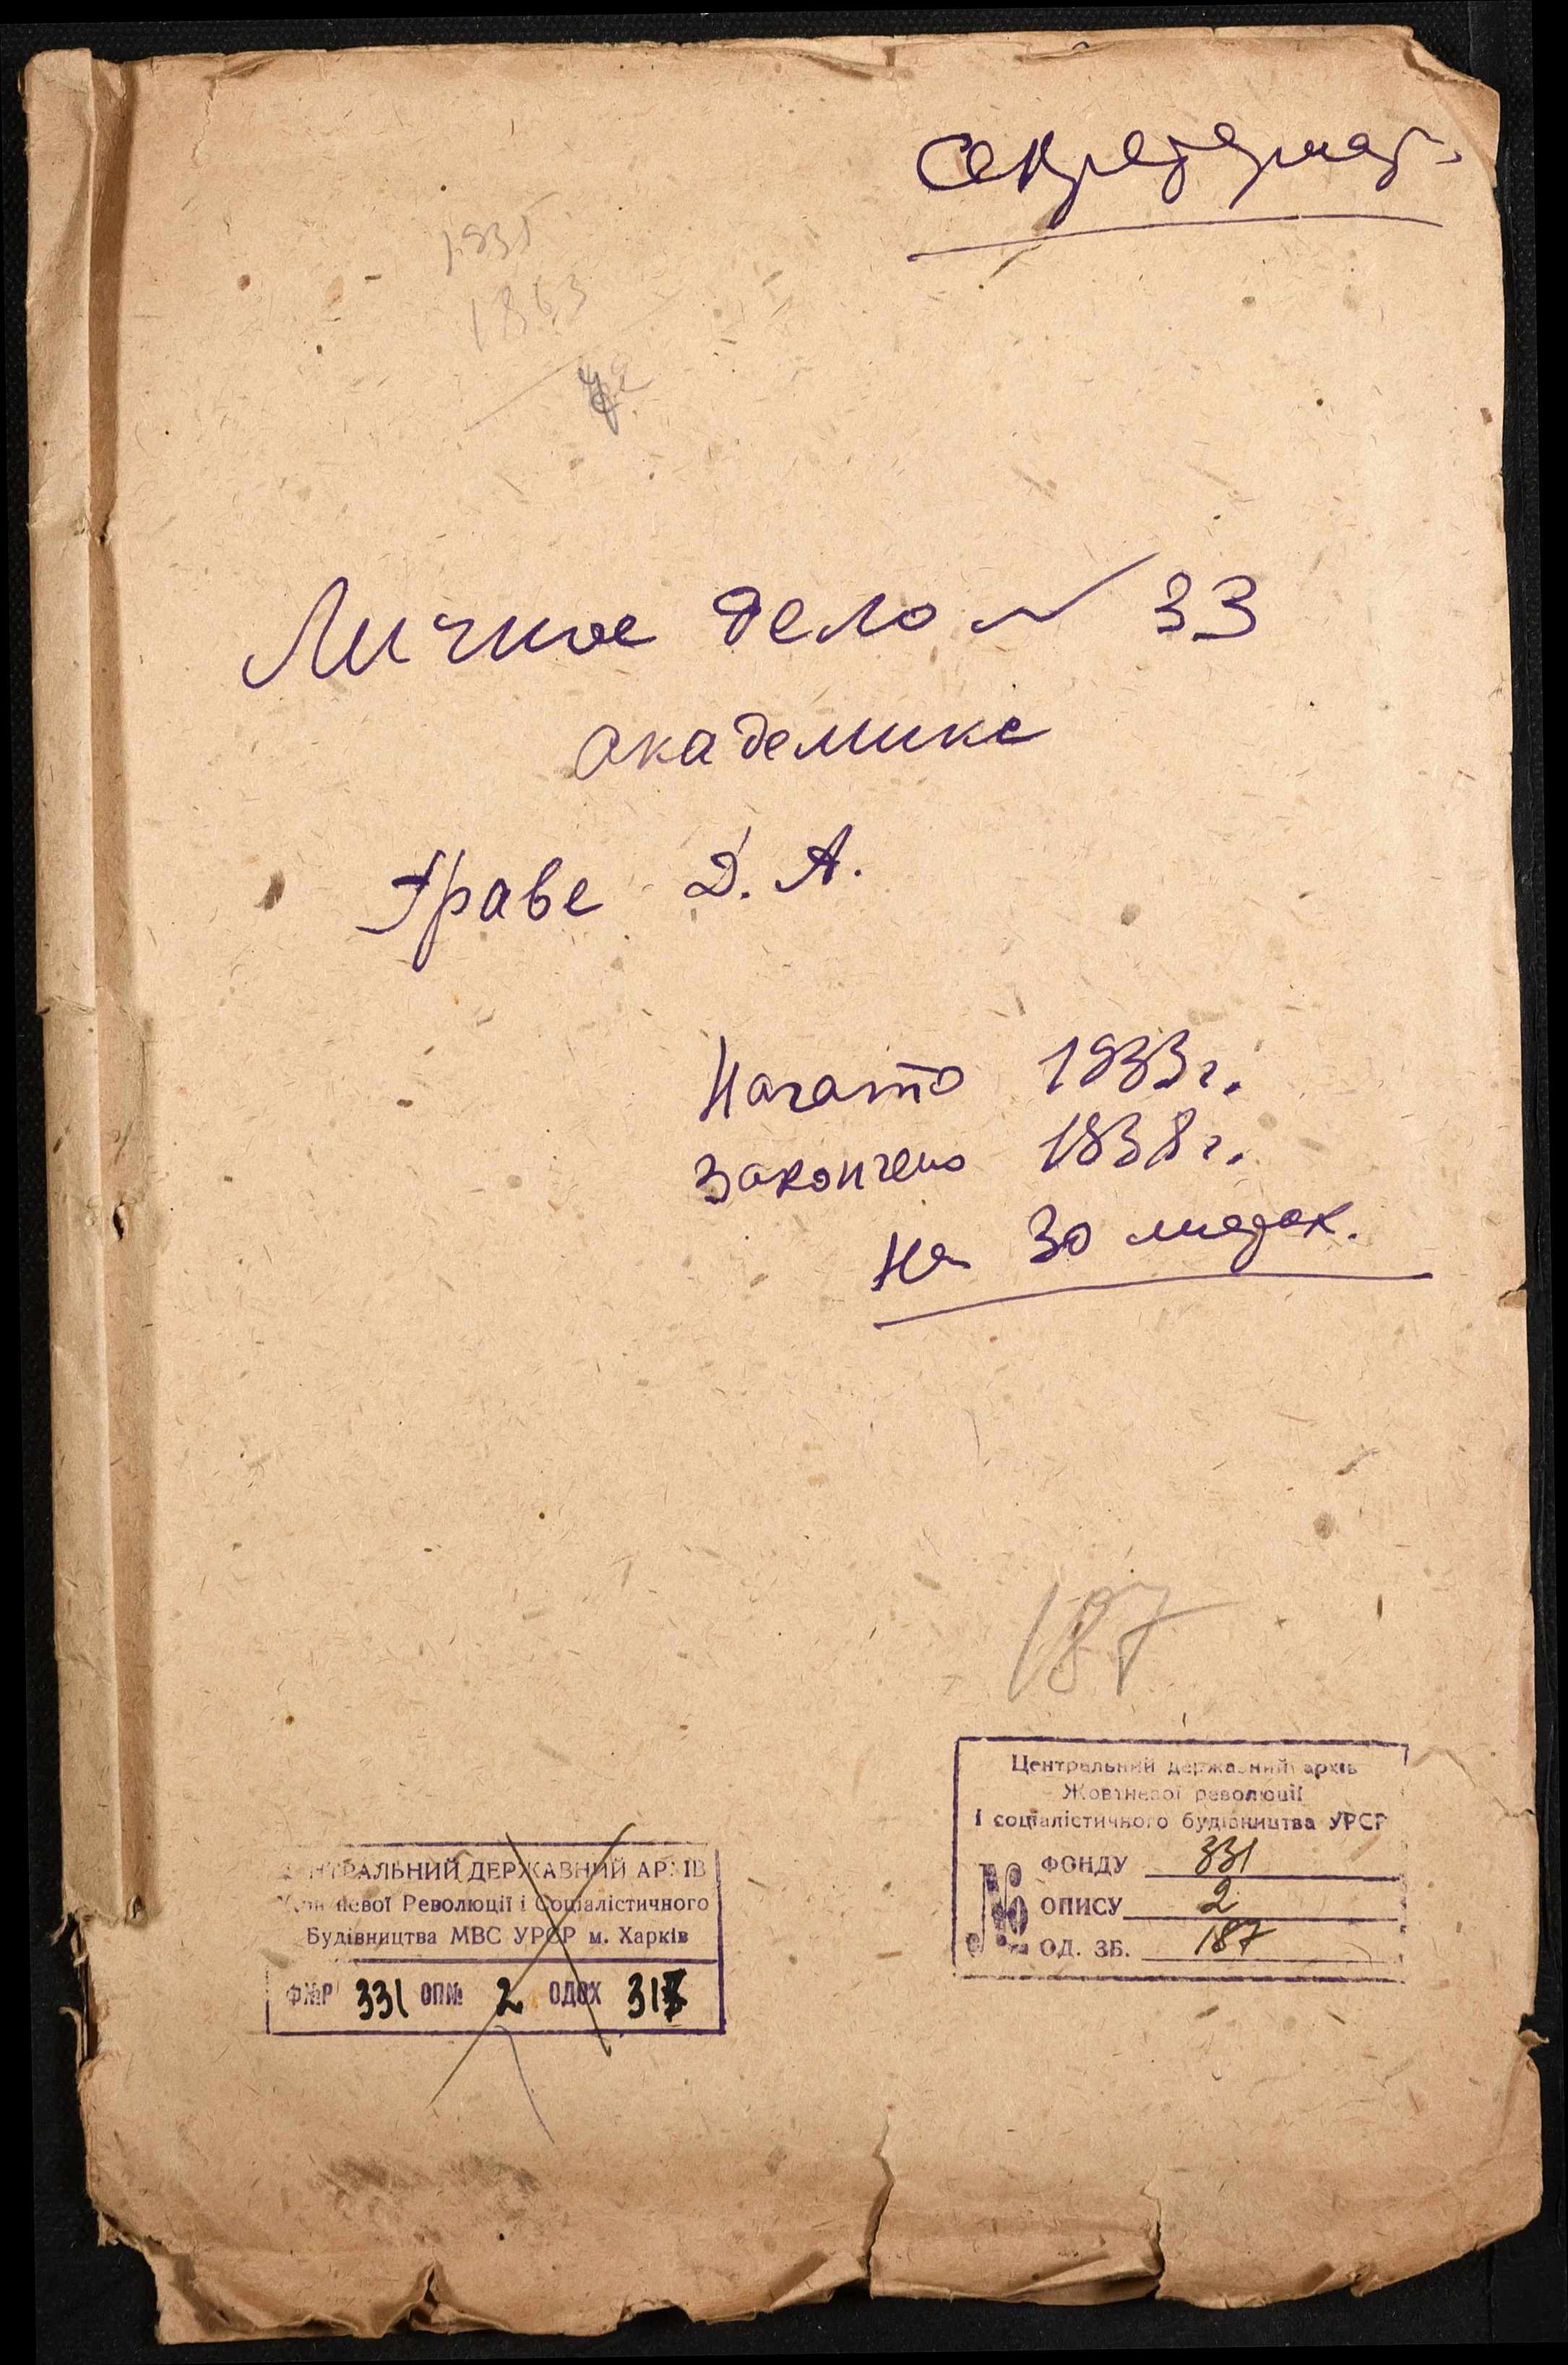 Секретариат.
1935
1863
72
Личное дело № 33
академика
Граве Д. А.
Начато 1933г.
Закончено 1938г.
На 30 листах.
187
Центральний державний архів
Жовтневої революції
і соціалістичного будівництва УРСР
№
ФОНДУ 331
ОПИСУ 2
ОД. ЗБ. 187
ЦЕНТРАЛЬНИЙ ДЕРЖАВНИЙ АРХІВ
Жовтневої Революції і Соціалістичного
Будівництва МВС УРСР м. Харків
Ф№Р 331 ОП№ 2 ОДОХ 317